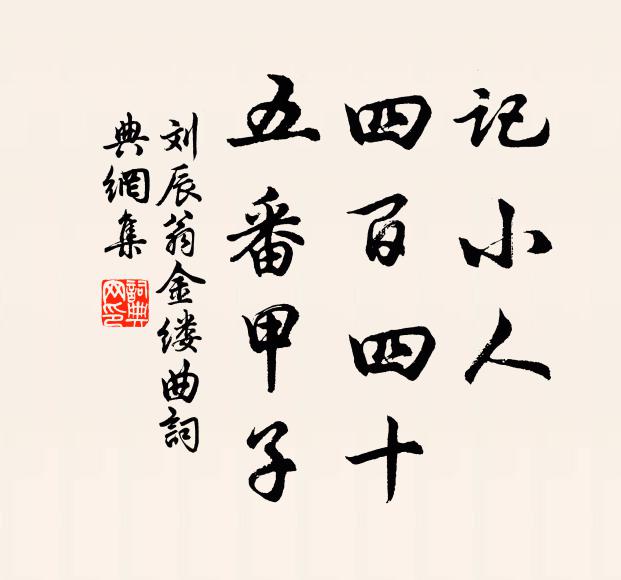 记小人
四百四十
五番甲子
刘辰翁金缕曲詞
典網集
詞典
网印